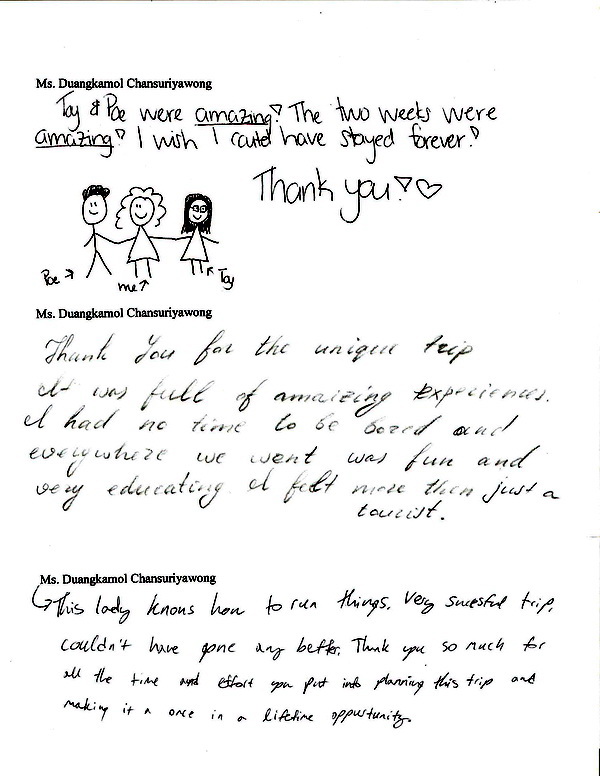 Ms. Duangkamol Chansuriyawong
Toy & Poe were amazing! The two weeks were
amazing! I wish I could have stayed forever!
Thank you! ♡
Poe →
me ↗
↖ Toy
Ms. Duangkamol Chansuriyawong
Thank You for the unique trip
It was full of amaizing experiences.
I had no time to be bored and
everywhere we went was fun and
very educating. I felt more then just a
tourist.
Ms. Duangkamol Chansuriyawong
This lady knows how to run things. Very succesful trip,
couldn't have gone any better. Thank you so much for
all the time and effort you put into planning this trip and
making it a once in a lifetime opportunity.